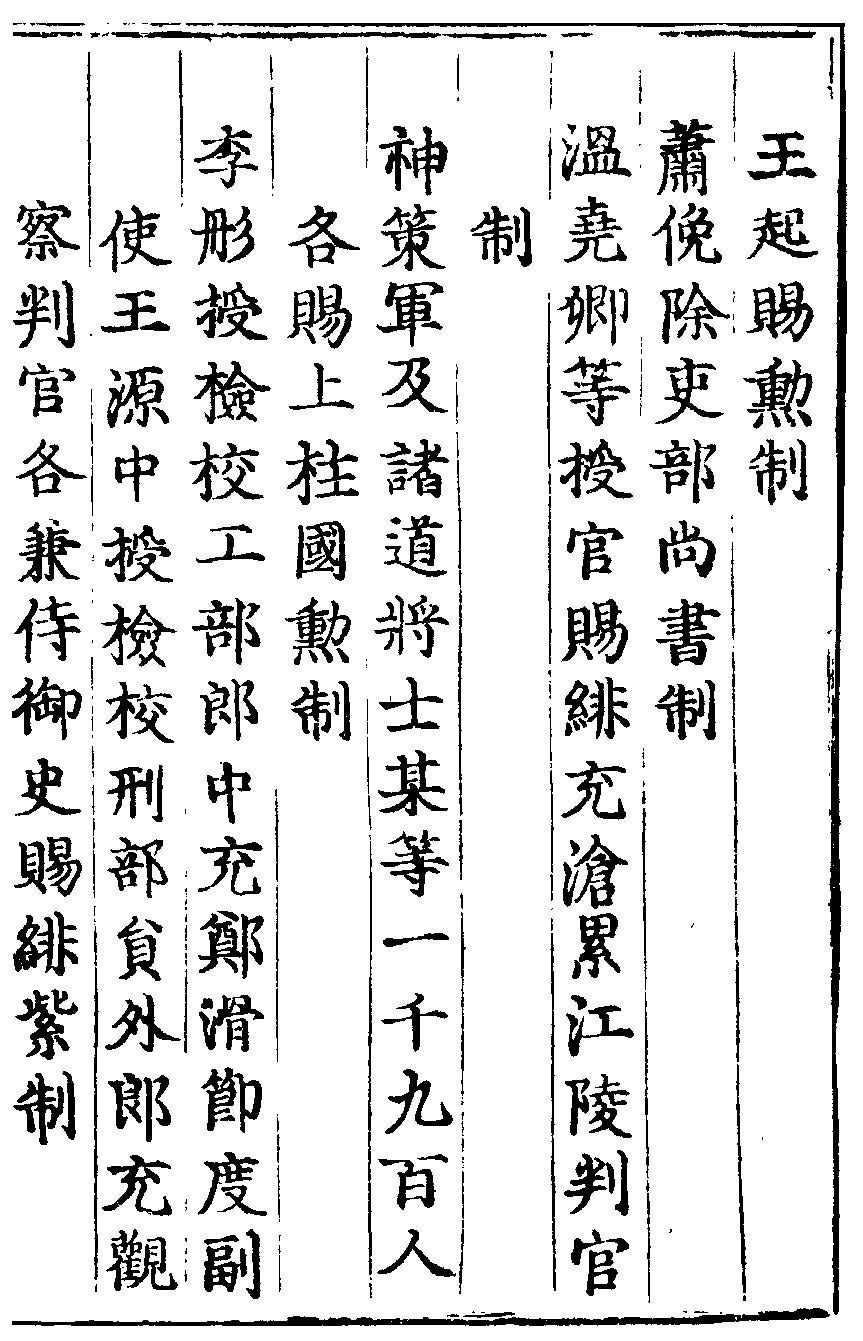 王起賜勲制
蕭俛除吏部尚書制
溫堯卿等授官賜緋充滄累江陵判官
制
神策軍及諸道將士某等一千九百人
各賜上柱國勲制
李彤授檢校工部郎中充鄭滑節度副
使王源中授檢校刑部貟外郎充觀
察判官各兼侍御史賜緋紫制